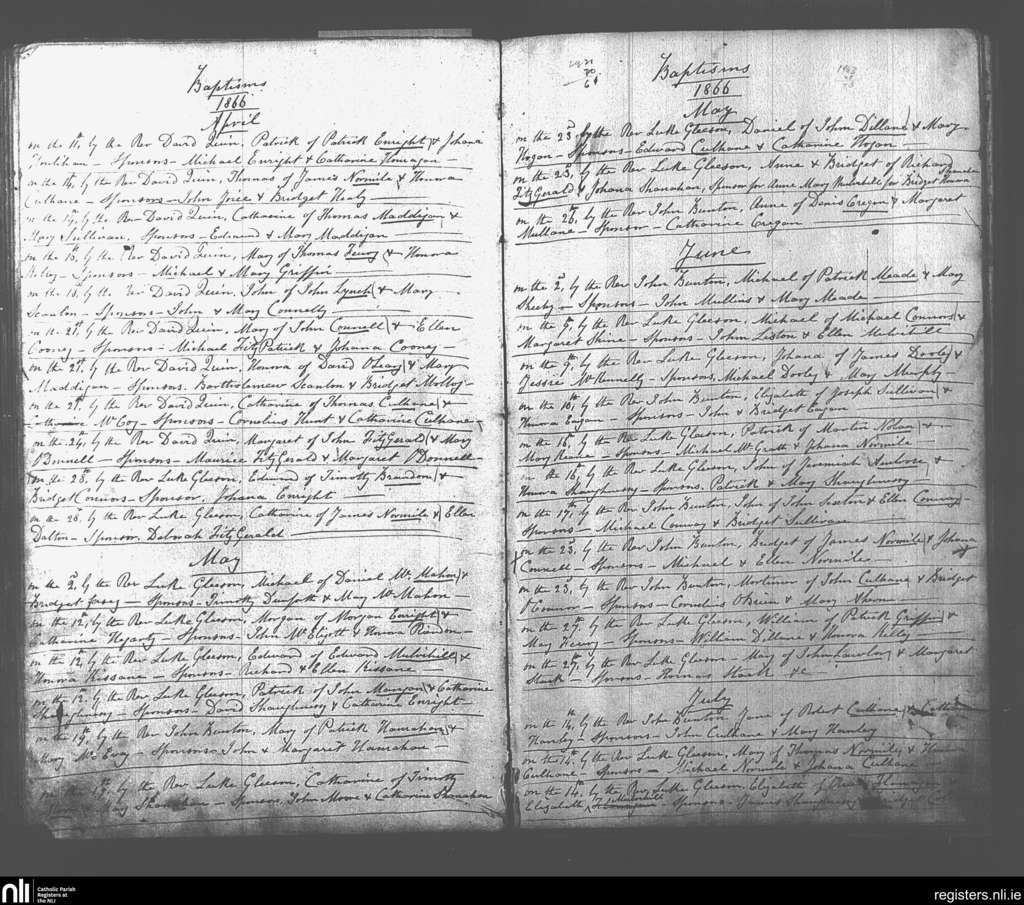 Baptisms
1866
April
on the 11, by the Rev David Quin, Patrick of Patrick Enright & Johana
Sponsors - Michael Enright & Catharine
on the 14, by the Rev David Quin, Thomas of James Normile & Honora
Culhane - Sponsors - John Joice & Bridget Healy
on the 17, by the Rev David Quin, Catharine of Thomas Maddigan &
Mary Sullivan, Sponsors - Edmund & Mary Maddigan
on the 18, by the Rev David Quin, Mary of Thomas & Honora
Kelly - Sponsors - Michael & Mary Griffin
on the 18, by the Rev David Quin, John of John Lynch & Mary
Scanlon - Sponsors - John & Mary Connelly
on the 21, by the Rev David Quin, Mary of John Connell & Ellen
Cooney - Sponsors - Michael FitzPatrick & Johana Cooney
on the 21, by the Rev David Quin, Honora of David O'Leary & Mary
Maddigan - Sponsors, Bartholemew Scanlon & Bridget Molloy
on the 21, by the Rev David Quin, Catharine of Thomas Culhane &
McCoy - Sponsors - Cornelius Hunt & Catharine Culhane
on the 24, by the Rev David Quin, Margaret of John FitzGerald & Mary
O'Donnell - Sponsors - Maurice FitzGerald & Margaret O'Donnell
on the 28, by the Rev Luke Gleeson, Edmund of Timothy &
Bridget Connors - Sponsor, Johana Enright
on the 28, by the Rev Luke Gleeson, Catharine of James Normile & Ellen
Dalton - Sponsor, Deborah FitzGerald
May
on the 2, by the Rev Luke Gleeson, Michael of Daniel Mc Mahon &
Bridget Casey - Sponsors - Timothy & Mary McMahon
on the 12, by the Rev Luke Gleeson, Morgan of Morgan Enright &
Catharine Hegarty - Sponsors - John McElgott & Honora
on the 12, by the Rev Luke Gleeson, Edward of Edward Mulvihill &
Honora Kissane - Sponsors - Richard & Ellen Kissane
on the 12, by the Rev Luke Gleeson, Patrick of John Mangan & Catharine
Shaughnessy - Sponsors - David Shaughnessy & Catharine Enright
on the 19, by the Rev John Bunton, Mary of Patrick Hanrahan &
Mary McEvoy - Sponsors - John & Margaret Hanrahan
by the Rev Luke Gleeson, Catharine of Timothy
Mary Shanahan - Sponsors, John Moore & Catharine Shanahan
Baptisms
1866
May
on the 23, by the Rev Luke Gleeson, Daniel of John Dillane & Mary
Hogan - Sponsors - Edward Culhane & Catharine Hogan
on the 23, by the Rev Luke Gleeson, Anne & Bridget of Richard
FitzGerald & Johana Shanahan, Sponsor for Anne Mary Mulvihill for Bridget Honora Shanahan
on the 26, by the Rev John Bunton, Anne of Denis Cregan & Margaret
Mullane - Sponsor - Catharine Cregan
June
on the 2, by the Rev John Bunton, Michael of Patrick Meade & Mary
Sheehy - Sponsors - John Mullins & Mary Meade
on the 9, by the Rev Luke Gleeson, Michael of Michael Connors &
Margaret Shine - Sponsors - John Liston & Ellen Mulvihill
on the 9, by the Rev Luke Gleeson, Johana of James Dooley &
Jessie McKennelly - Sponsors, Michael Dooley & Mary Murphy
on the 16, by the Rev John Bunton, Elizabeth of Joseph Sullivan &
Honora Eagan - Sponsors - John & Bridget Eagan
on the 16, by the Rev Luke Gleeson, Patrick of Martin Nolan &
Mary - Sponsors - Michael McGrath & Johana Normile
on the 16, by the Rev Luke Gleeson, John of Jeremiah Ambrose &
Honora Shaughnessy - Sponsors, Patrick & Mary Shaughnessy
on the 17, by the Rev John Bunton, John of John Sexton & Ellen Conway
Sponsors - Michael Conway & Bridget Sullivan
on the 23, by the Rev John Bunton, Bridget of James Normile & Johana
Connell - Sponsors - Michael & Ellen Normile
on the 23, by the Rev John Bunton, Mortimer of John Culhane & Bridget
O'Connor - Sponsors - Cornelius O'Brien & Mary
on the 27, by the Rev Luke Gleeson, William of Patrick Griffin &
Mary - Sponsors - William Dillane & Honora Kelly
on the 27, by the Rev Luke Gleeson - Mary of John Lawlor & Margaret
Stack - Sponsors - Thomas Stack &c
July
on the 14, by the Rev John Bunton, Jane of Robert Culhane &
Hanley - Sponsors - John Culhane & Mary Hanley
on the 14, by the Rev Luke Gleeson, Mary of Thomas Normile &
Culhane - Sponsors - Michael Normile & Johana Culhane
on the 14, by the Rev Luke Gleeson, Elizabeth of
Elizabeth Mulvihill Sponsors - James Shaughnessy & Bridget
nli
Catholic Parish
Registers at
the NLI
registers.nli.ie